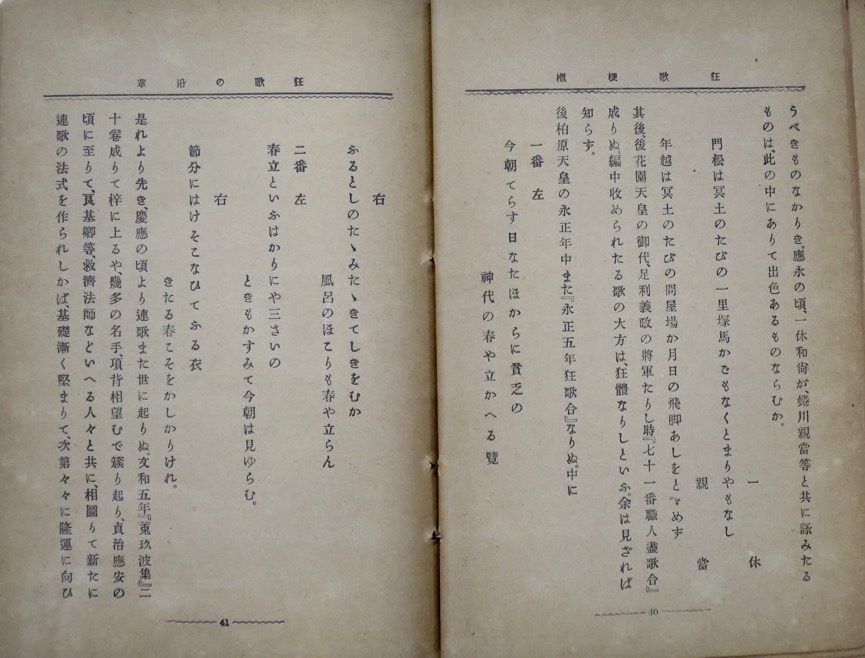 狂歌梗概
うべきものなかりき。應永の頃、一休和尙が、蜷川親當等と共に詠みたる
ものは、此の中にありて出色あるものならむか。
一休
門松は冥土のたびの一里塚馬かごもなくとまりやもなし
親當
年越は冥土のたびの問屋場か月日の飛脚あしをとゞめず
其後、後花園天皇の御代、足利義政の將軍たりし時『七十一番職人盡歌合』
成りぬ。編中收められたる歌の大方は、狂體なりしといふ。余は見ざれば
知らず。
後柏原天皇の永正年中また『永正五年狂歌合』なりぬ。中に
一番左
今朝てらす日なたほからに貧乏の
神代の春や立かへる覽
40
狂歌の沿革
右
ふるとしのたゝみたゝきてしきをむか
風呂のほこりも春や立らん
二番左
春立といふはかりにや三さいの
ときもかすみて今朝は見ゆらむ。
右
節分にはけそこなひてふる衣
きたる春こそをかしかりけれ。
是れより先き、慶應の頃より連歌また世に起りぬ。文和五年『菟玖波集』二
十卷成りて梓に上るや、幾多の名手、項背相望むで簇り起り、貞治應安の
頃に至りて、良基卿等、救濟法師などいへる人々と共に、相圖りて新たに
連歌の法式を作られしかば、基礎漸く堅まりて次第々々に隆運に向ひ
41